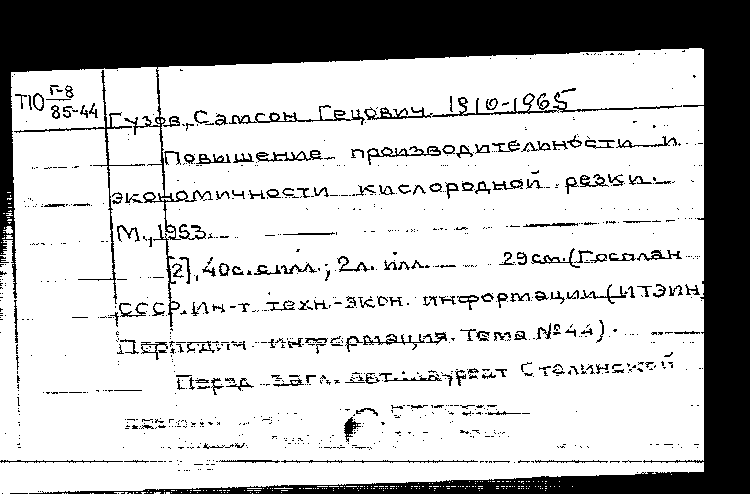 Т10 Г-8
85-44
Гузов, Самсон Гецович. 1910-1965
Повышение производительности и
экономичности кислородной резки.
М., 1953.
[2], 40с. с илл.; 2л. илл. 29см. (Госплан
СССР. Ин-т техн.-экон. информации (ИТЭИН)
Периодич. информация. Тема №44).
Перед загл. авт.: лауреат Сталинской